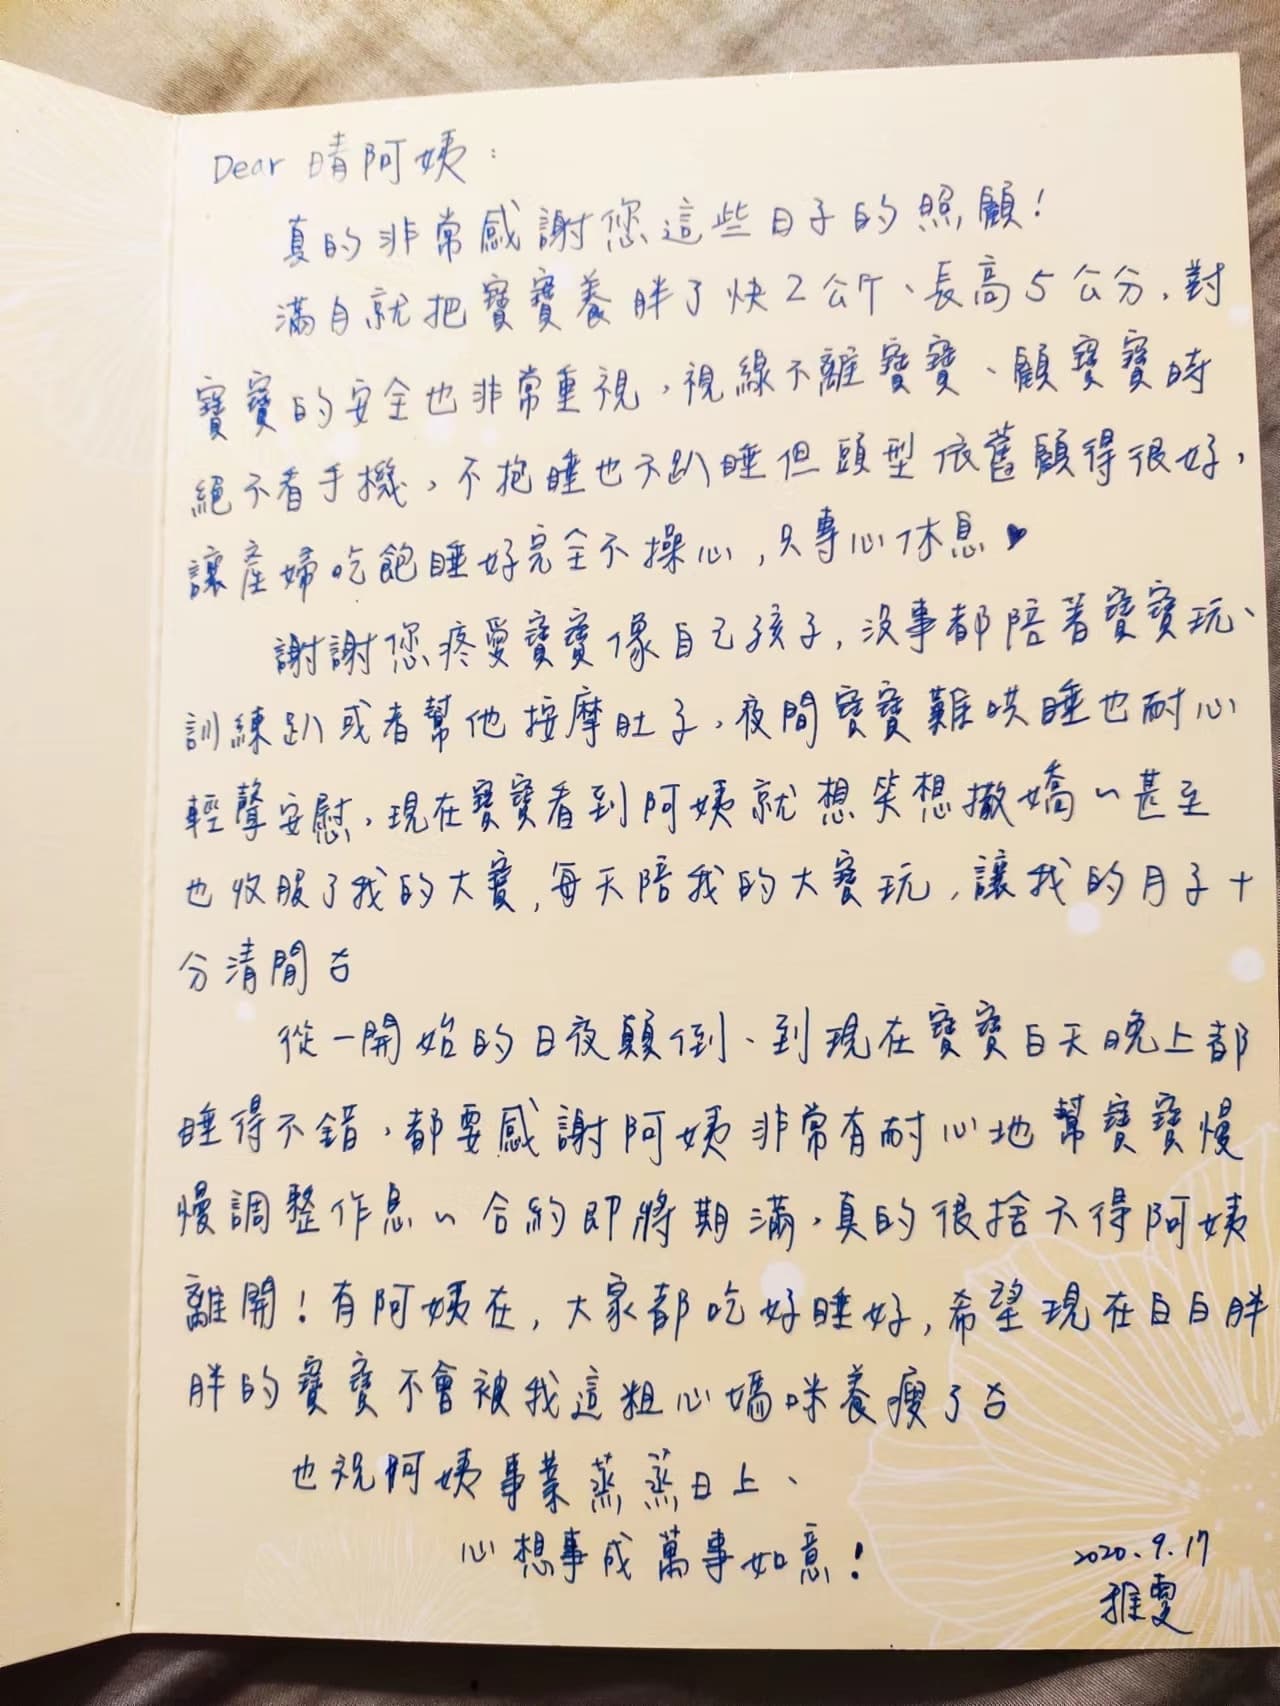 Dear 晴阿姨：
真的非常感謝您這些日子的照顧！
滿月就把寶寶養胖了快2公斤、長高5公分，對
寶寶的安全也非常重視，視線不離寶寶、顧寶寶時
絕不看手機，不抱睡也不趴睡但頭型依舊顧得很好，
讓產婦吃飽睡好完全不操心，只專心休息♥
謝謝您疼愛寶寶像自己孩子，沒事都陪著寶寶玩、
訓練趴或者幫他按摩肚子，夜間寶寶難哄睡也耐心
輕聲安慰，現在寶寶看到阿姨就想笑想撒嬌~甚至
也收服了我的大寶，每天陪我的大寶玩，讓我的月子十
分清閒
從一開始的日夜顛倒、到現在寶寶白天晚上都
睡得不錯，都要感謝阿姨非常有耐心地幫寶寶慢
慢調整作息~合約即將期滿，真的很捨不得阿姨
離開！有阿姨在，大家都吃好睡好，希望現在白白胖
胖的寶寶不會被我這粗心媽咪養瘦了
也祝阿姨事業蒸蒸日上、
心想事成萬事如意！
2020.9.17
雅雯